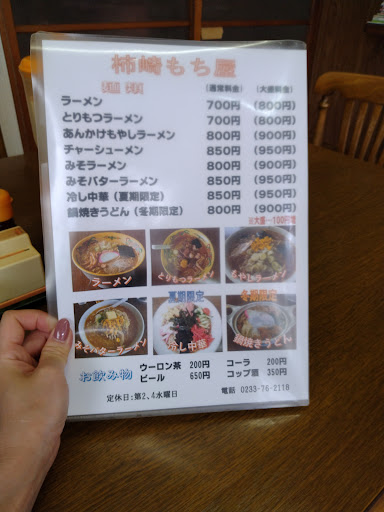 柿崎もち屋
(通常料金) (大盛料金)
ラーメン 700円 (800円)
とりもつラーメン 700円 (800円)
あんかけもやしラーメン 800円 (900円)
チャーシューメン 850円 (950円)
みそラーメン 800円 (900円)
みそバターラーメン 850円 (950円)
冷し中華（夏期限定） 850円 (950円)
鍋焼きうどん（冬期限定） 800円 (900円)
※大盛…100円増
ラーメン
とりもつラーメン
もやしラーメン
夏期限定 冬期限定
みそバターラーメン
冷し中華
鍋焼きうどん
お飲み物
ウーロン茶 200円 コーラ 200円
ビール 650円 コップ酒 350円
定休日:第2、4水曜日 電話 0233-76-2118